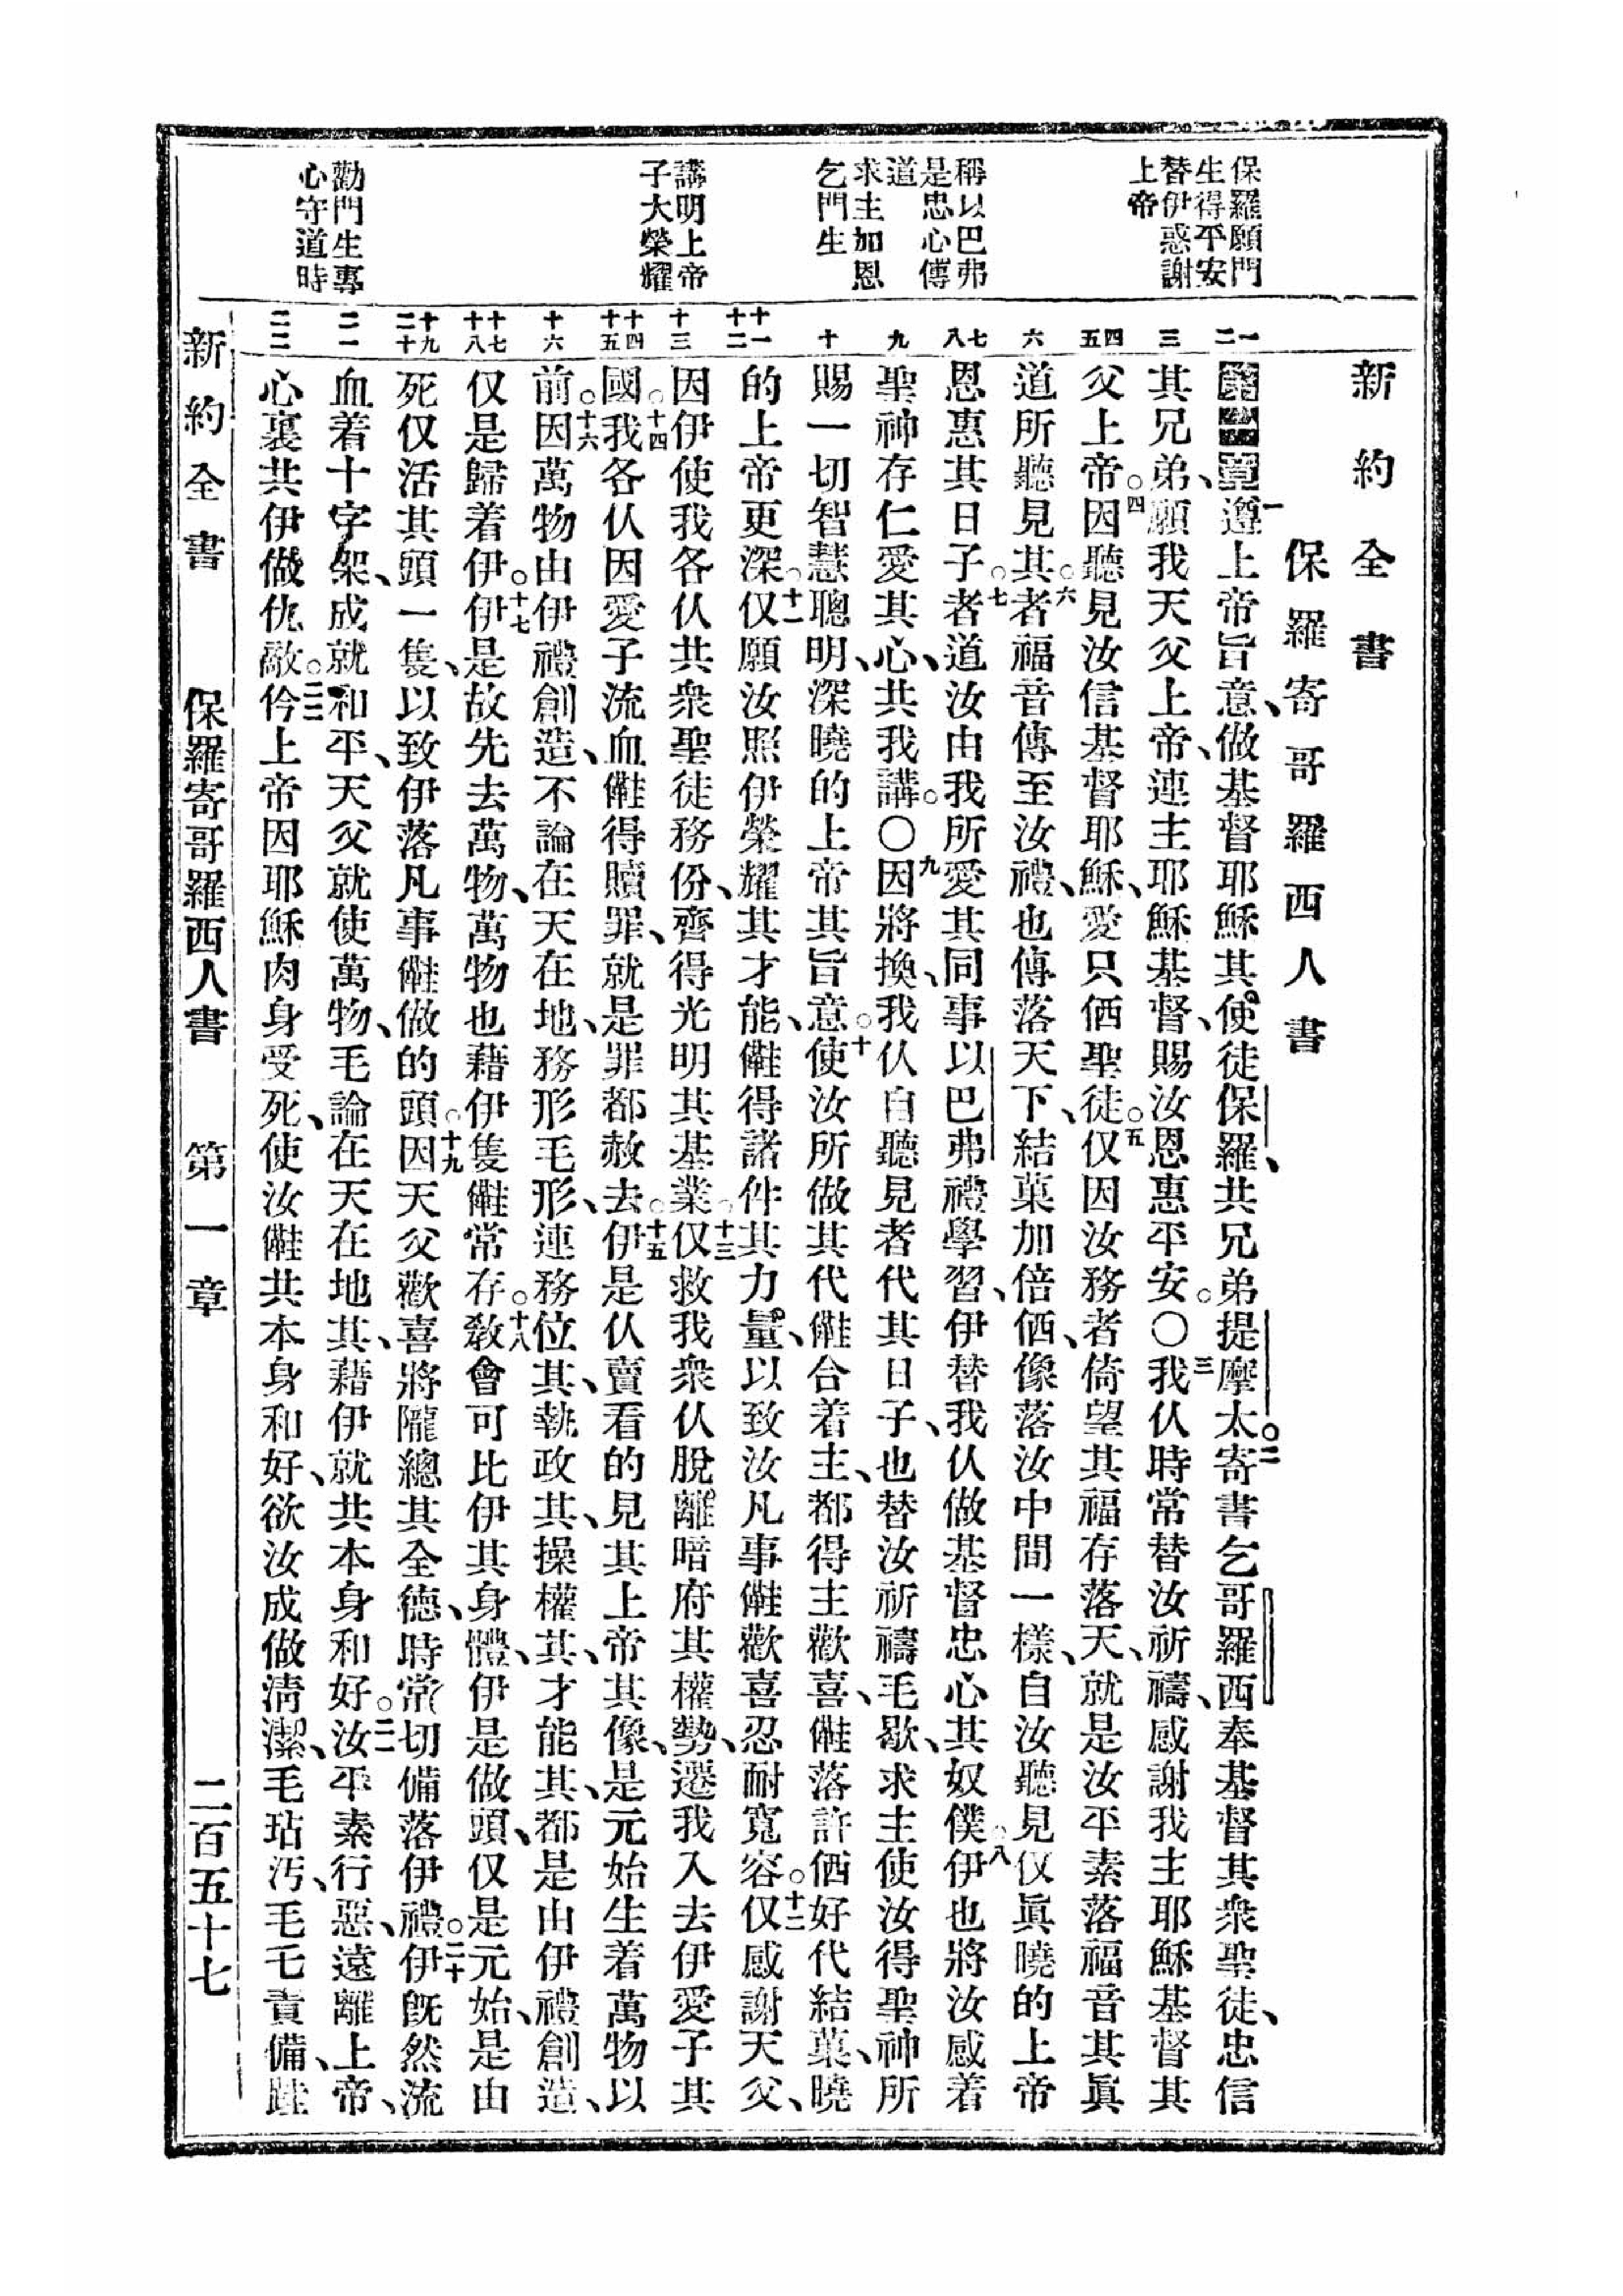 新約全書
保羅寄哥羅西人書
保羅願門
生得平安
替伊惑謝
上帝
稱以巴弗
是忠心傳
道
求主加恩
乞門生
講明上帝
子大榮耀
勸門生專
心守道時
一 二
三
四 五
六
七 八
九
十
十一 十二
十三
十四 十五
十六
十七 十八
十九 二十
二一
二二
第一章一遵上帝旨意、做基督耶穌其使徒保羅、共兄弟提摩太。二寄書乞哥羅西奉基督其衆聖徒、忠信
其兄弟、願我天父上帝、連主耶穌基督、賜汝恩惠平安。〇三我仈時常替汝祈禱、感謝我主耶穌基督其
父上帝。四因聽見汝信基督耶穌、愛只㑚聖徒。五仅因汝務者倚望其福存落天、就是汝平素落福音其眞
道所聽見其。六者福音傳至汝禮、也傳落天下、結菓加倍㑚、像落汝中間一樣、自汝聽見仅眞曉的上帝
恩惠其日子。七者道汝由我所愛其同事以巴弗禮學習、伊替我仈做基督忠心其奴僕。八伊也將汝感着
聖神存仁愛其心、共我講。〇九因將換、我仈自聽見者代其日子、也替汝祈禱毛歇、求主使汝得聖神所
賜一切智慧聰明、深曉的上帝其旨意。十使汝所做其代㒕合着主、都得主歡喜、㒕落許㑚好代結菓、曉
的上帝更深。十一仅願汝照伊榮耀其才能、㒕得諸件其力量、以致汝凡事㒕歡喜忍耐寬容。十二仅感謝天父、
因伊使我各仈共衆聖徒務份、齊得光明其基業。十三仅救我衆仈脫離暗府其權勢、遷我入去伊愛子其
國。十四我各仈因愛子流血㒕得贖罪、就是罪都赦去。十五伊是仈賣看的見其上帝其像、是元始生着萬物以
前。十六因萬物由伊禮創造、不論在天在地、務形毛形、連務位其、執政其、操權其、才能其、都是由伊禮創造、
仅是歸着伊。十七伊是故先去萬物、萬物也藉伊隻㒕常存。十八敎會可比伊其身體、伊是做頭、仅是元始、是由
死仅活其頭一隻、以致伊落凡事㒕做的頭。十九因天父歡喜將隴總其全德、時常切備落伊禮。二十伊旣然流
血着十字架、成就和平、天父就使萬物、毛論在天在地其、藉伊就共本身和好。二一汝平素行惡、遠離上帝、
心裏共伊做仇敵。二二仱上帝因耶穌肉身受死、使汝㒕共本身和好、欲汝成做淸潔、毛玷汚、毛乇責備、𨅏
新約全書 保羅寄哥羅西人書 第一章 二百五十七